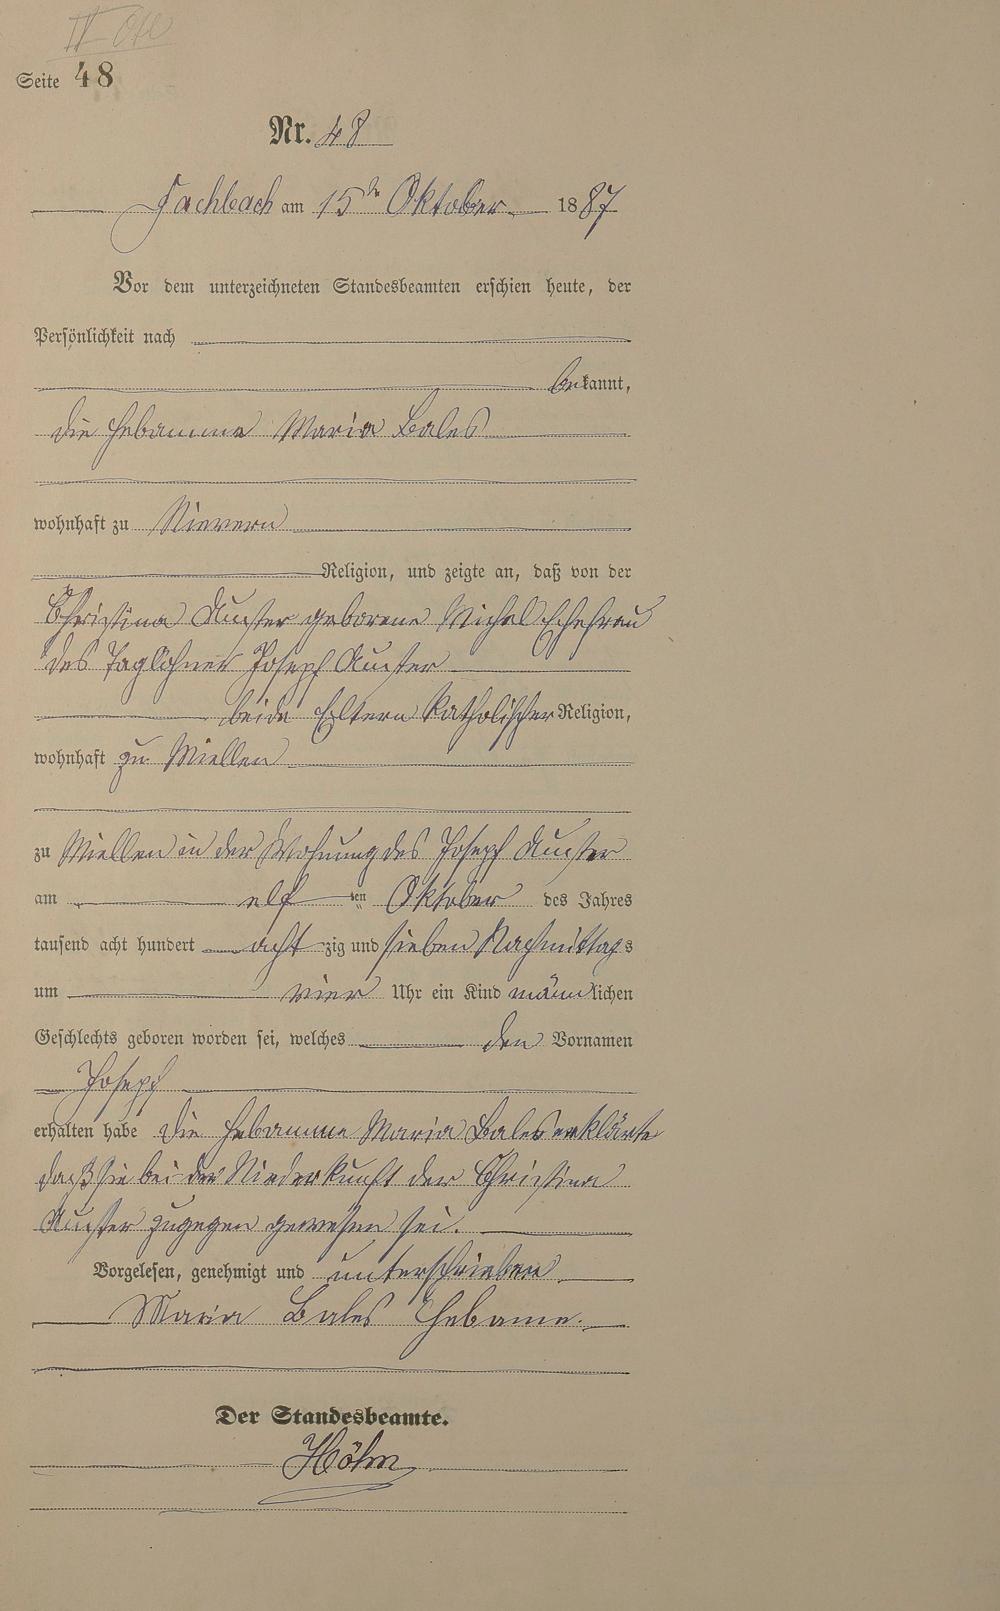 Seite 48
Nr. 48
Fachbach am 15ten Oktober 1887
Vor dem unterzeichneten Standesbeamten erschien heute, der
Persönlichkeit nach
bekannt,
die Hebamme Maria Bales
wohnhaft zu Nievern
Religion, und zeigte an, daß von der
Christina Auster geborene Michel Ehefrau
des Taglöhner Joseph Auster
beide Eltern katholischer Religion,
wohnhaft zu Miellen
zu Miellen in der Wohnung des Joseph Auster
am elf ten Oktober des Jahres
tausend acht hundert acht zig und sieben Nachmittags
um vier Uhr ein Kind männlichen
Geschlechts geboren worden sei, welches den Vornamen
Joseph
erhalten habe die Hebamme Maria Bales erklärte
daß sie bei der Niederkunft der Christina
Auster zugegen gewesen sei.
Vorgelesen, genehmigt und unterschrieben
Maria Bales Hebame.
Der Standesbeamte.
Höhn